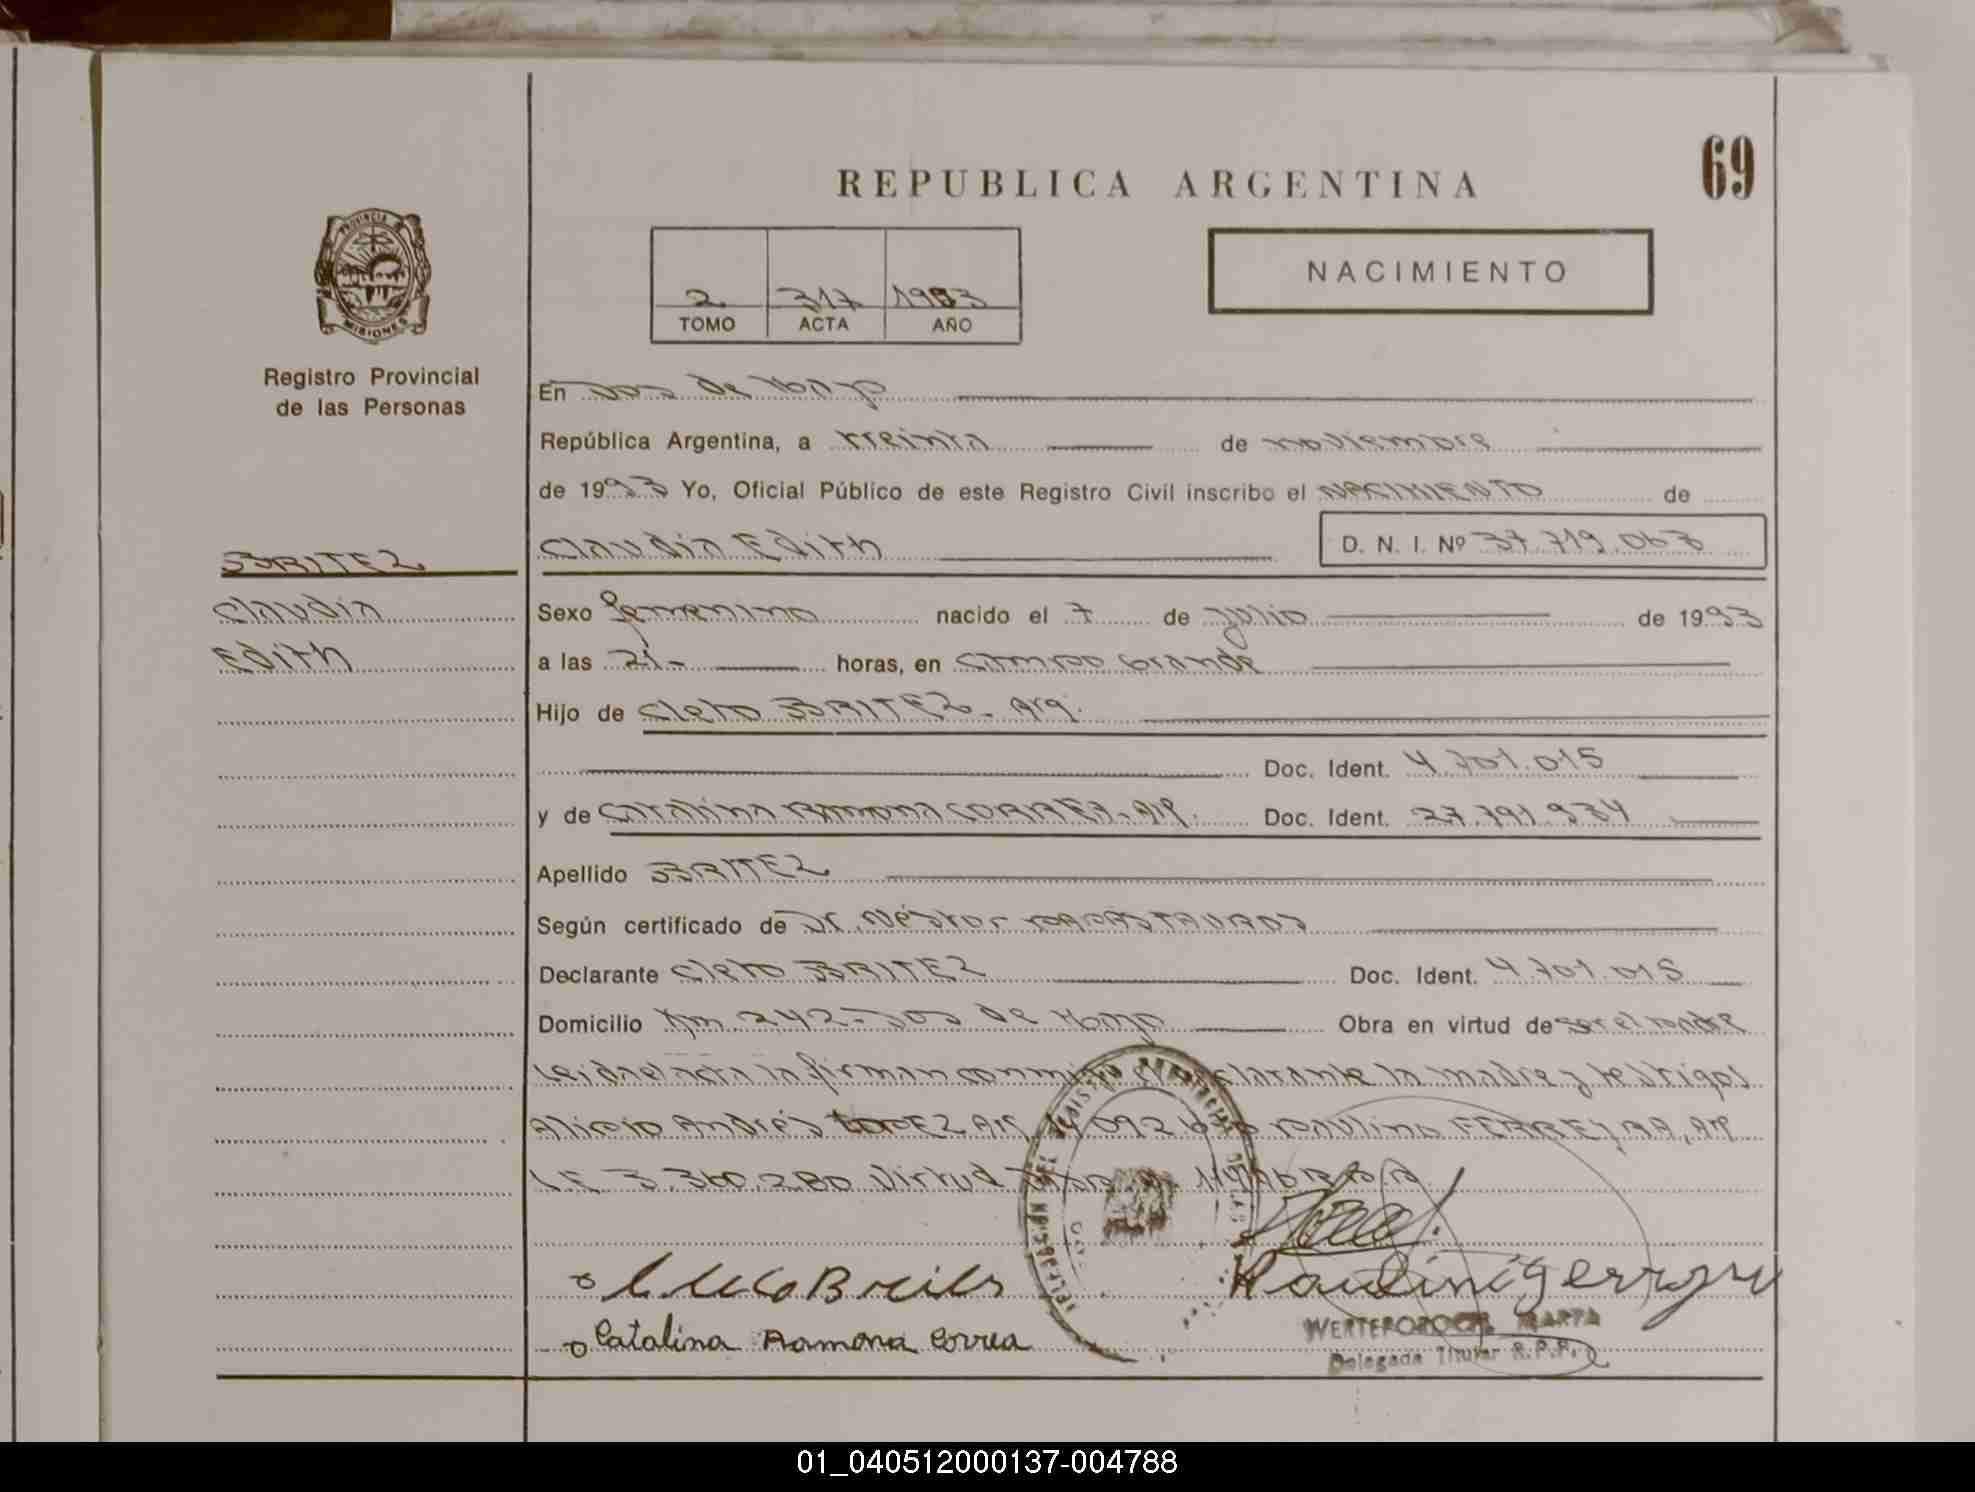 69
REPUBLICA ARGENTINA
PROVINCIA
MISIONES
Registro Provincial
de las Personas
2 317 1993
TOMO ACTA AÑO
NACIMIENTO
En Dos de Mayo
República Argentina, a treinta de noviembre
de 1993 Yo, Oficial Público de este Registro Civil inscribo el NACIMIENTO de
BRITEZ
Claudia Edith D. N. I. Nº 37.719.063
Claudia
Edith
Sexo femenino nacido el 7 de julio de 1993
a las 21- horas, en Campo Grande
Hijo de Cleto BRITEZ - Arg.
Doc. Ident. 4.701.015
y de Catalina Ramona CORREA - Arg. Doc. Ident. 27.791.934
Apellido BRITEZ
Según certificado de Dr. Néstor
Declarante Cleto BRITEZ Doc. Ident. 4.701.015
Domicilio Km. 242 - Dos de Mayo Obra en virtud de ser el padre
Leida el acta la firman conmigo el declarante la madre y testigos
Andrés LOPEZ Arg. Paulino FERREYRA, Arg.
L.E 3.360.280 virtud
Catalina Ramona Correa
MARTA
Delegada Titular R.P.P.
01_040512000137-004788